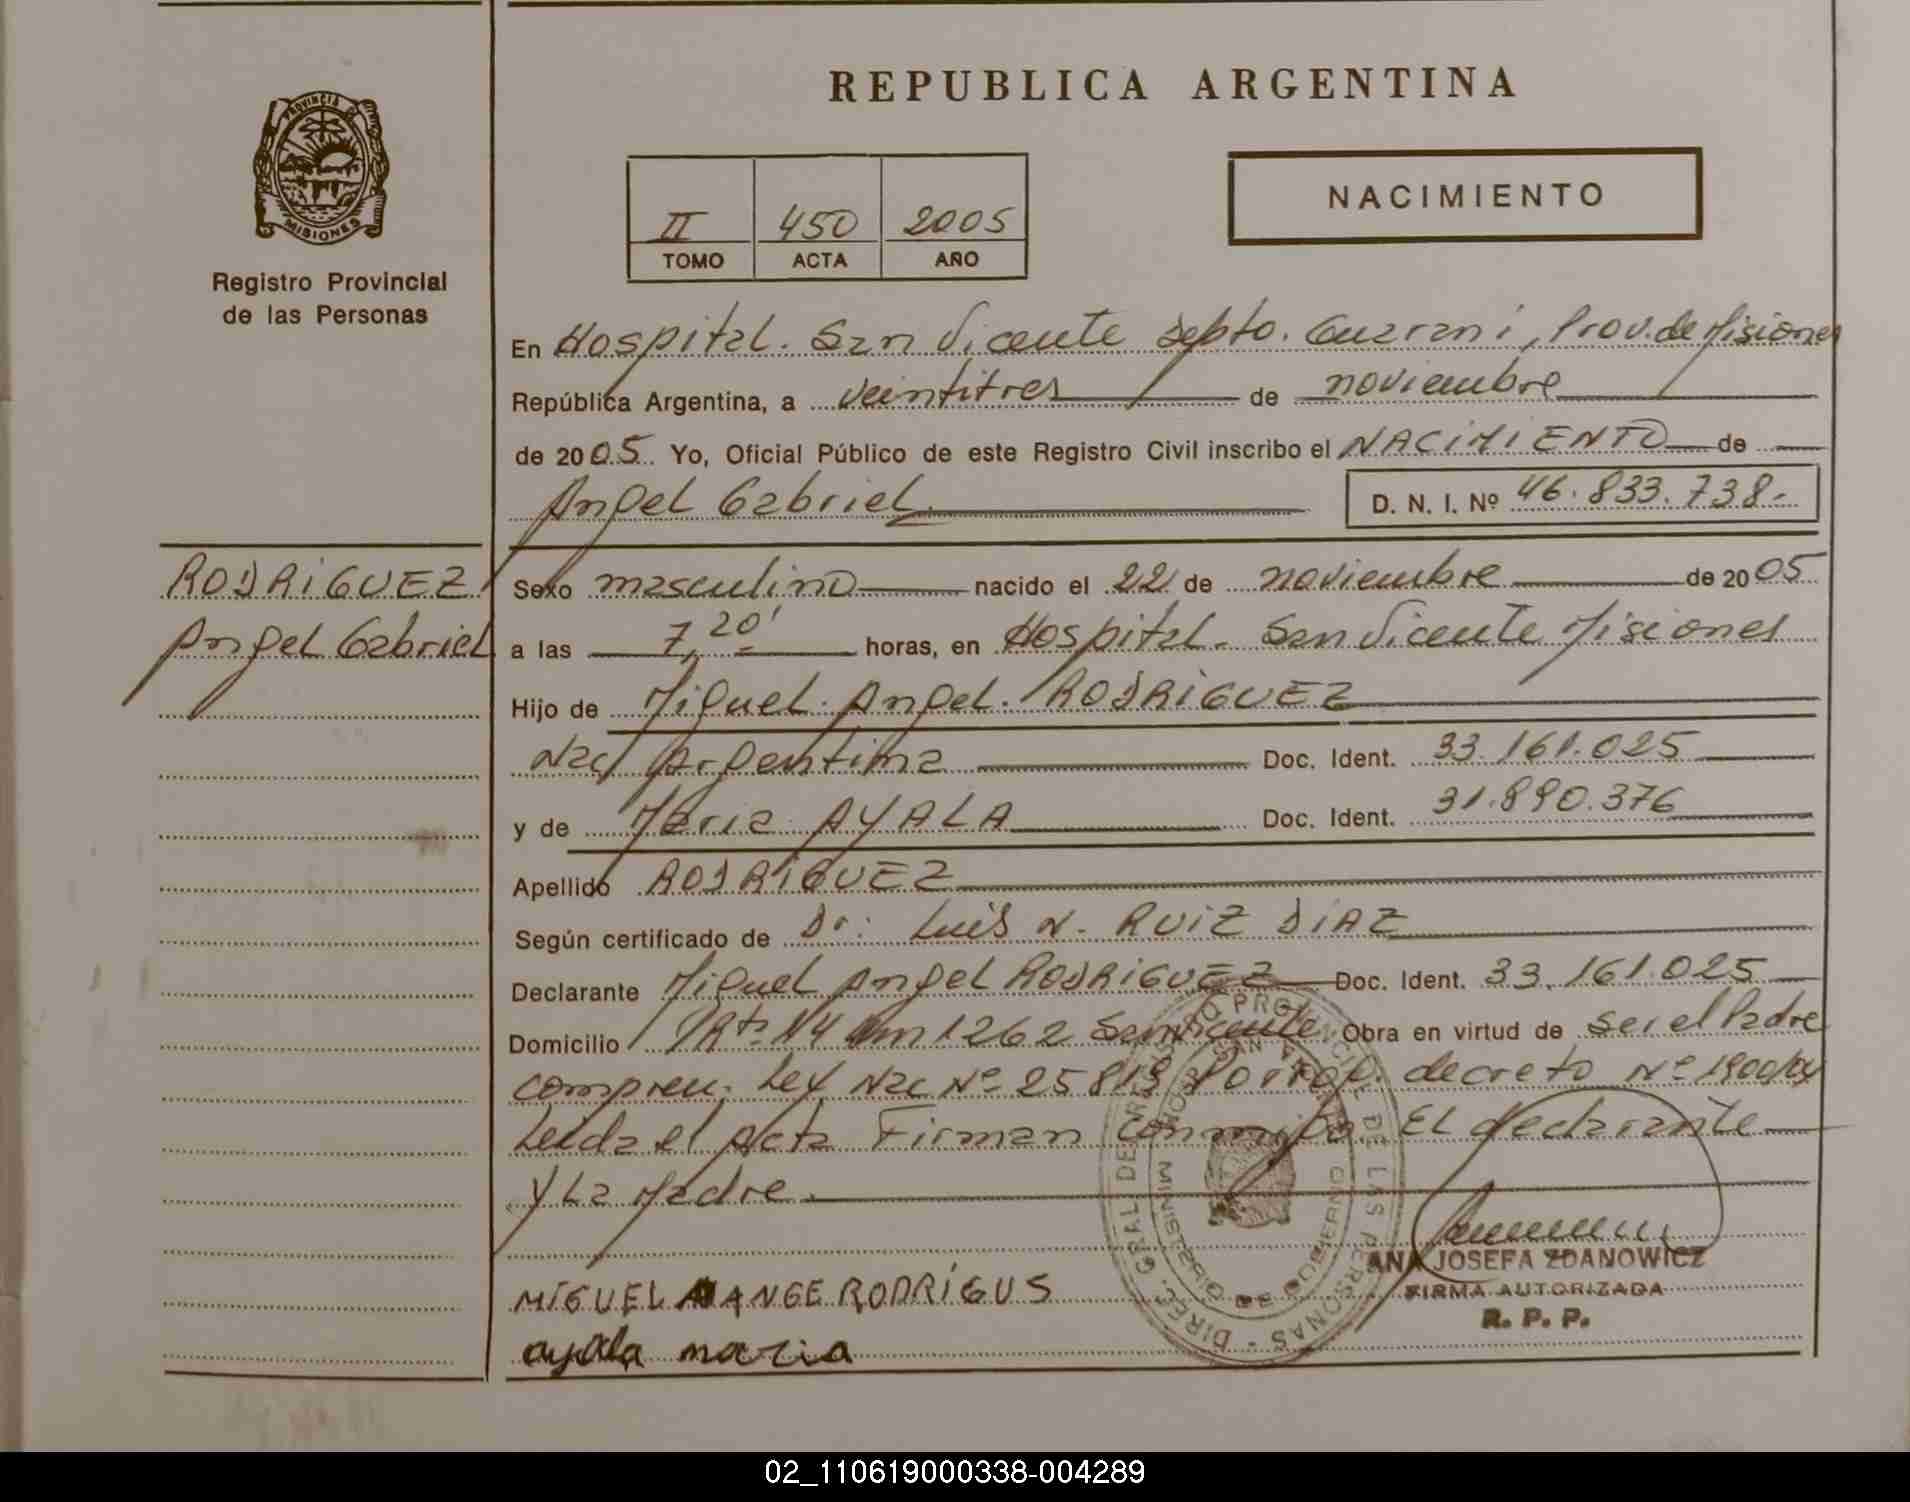 REPUBLICA ARGENTINA
PROVINCIA DE
MISIONES
Registro Provincial
de las Personas
II 450 2005
TOMO ACTA AÑO
NACIMIENTO
En Hospital. San Vicente Depto. Guarani, Prov. de Misiones
República Argentina, a veintitres de noviembre
de 2005 Yo, Oficial Público de este Registro Civil inscribo el NACIMIENTO de
Angel Gabriel D. N. I. Nº 46.833.738.-
RODRIGUEZ
Angel Gabriel
Sexo masculino nacido el 22 de noviembre de 2005
a las 7,20' horas, en Hospital. San Vicente Misiones
Hijo de Miguel Angel. RODRIGUEZ
Nac Argentina Doc. Ident. 33.161.025
y de Maria AYALA Doc. Ident. 31.890.376
Apellido RODRIGUEZ
Según certificado de Dr. Luis N. RUIZ DIAZ
Declarante Miguel Angel RODRIGUEZ Doc. Ident. 33.161.025
Domicilio Rta 14 Km 1262 San Vicente Obra en virtud de ser el Padre
compren. Ley Nac Nº 25819 Porrog. decreto Nº
Leida el Acta Firman conmigo EL declarante
y La Madre
MIGUEL ANGE RODRÍGUS
ayala maria
ANA JOSEFA ZDANOWICZ
FIRMA AUTORIZADA
R. P. P.
DIREC. GRAL. DE REGISTRO PROVINCIAL DE LAS PERSONAS
MINISTERIO DE GOBIERNO
02_110619000338-004289